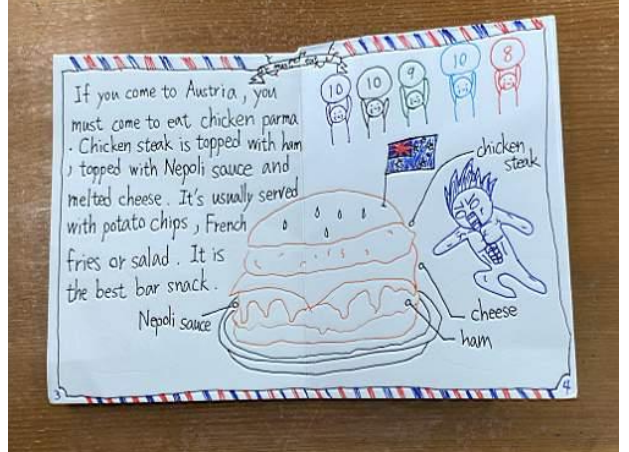 If you come to Austria, you
must come to eat chicken parma
. Chicken steak is topped with ham
, topped with Nepoli sauce and
melted cheese. It's usually served
with potato chips, French
fries or salad. It is
the best bar snack.
10
10
9
10
8
chicken
steak
Nepoli sauce
cheese
ham
3
4